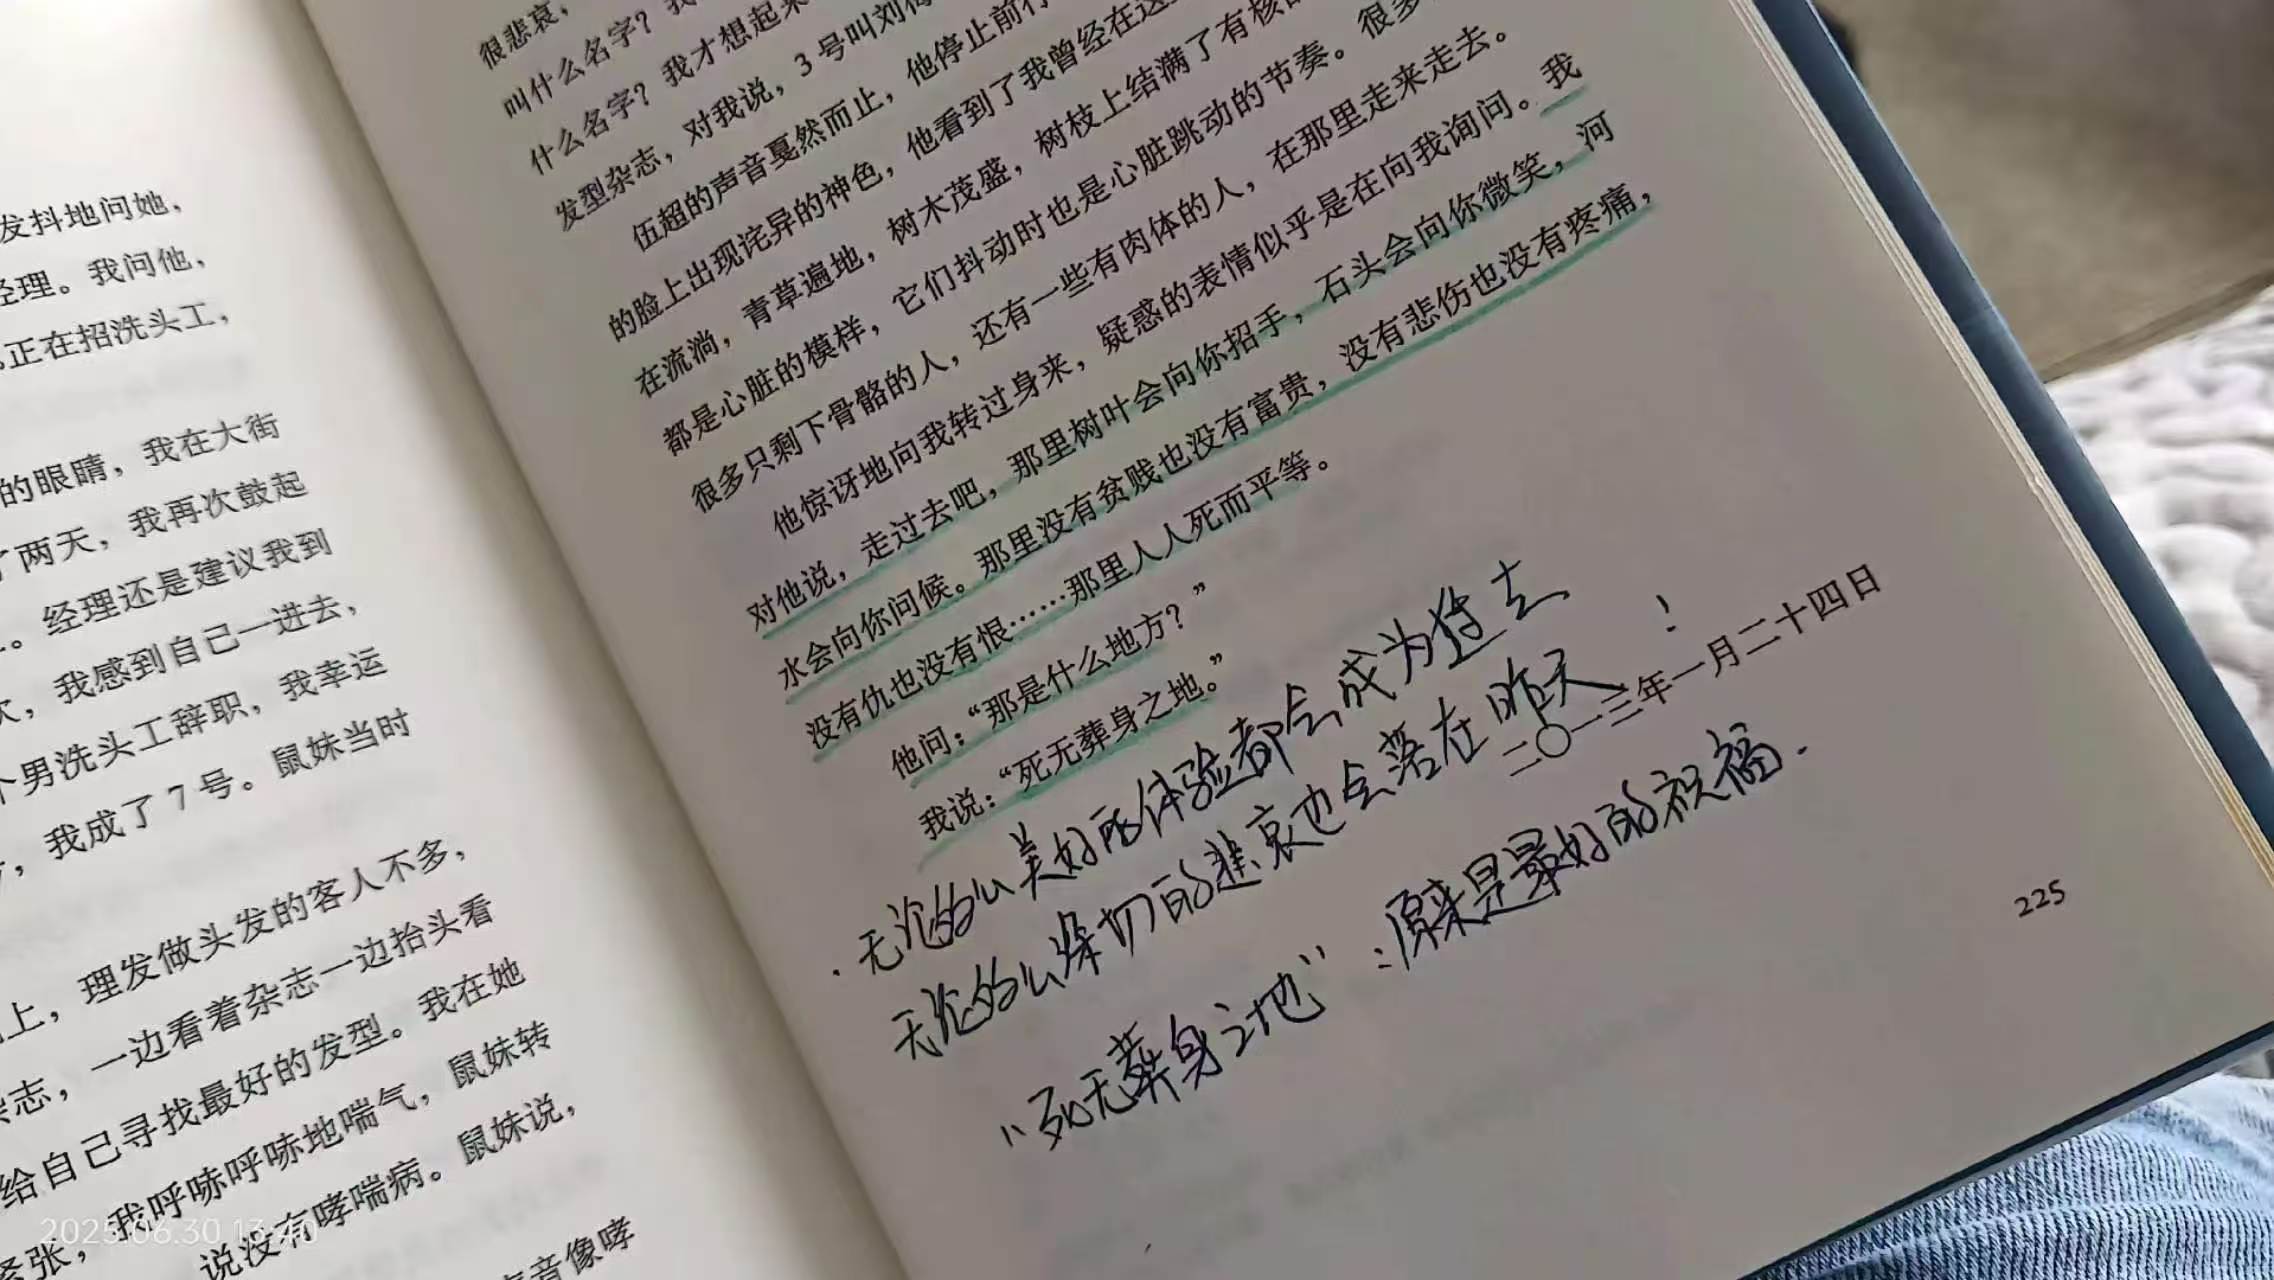 发抖地问她，
经理。我问他，
正在招洗头工，
的眼睛，我在大街
了两天，我再次鼓起
。经理还是建议我到
次，我感到自己一进去，
个男洗头工辞职，我幸运
，我成了7号。鼠妹当时
上，理发做头发的客人不多，
杂志，一边看着杂志一边抬头看
给自己寻找最好的发型。我在她
紧张，我呼哧呼哧地喘气，鼠妹转
说没有哮喘病。鼠妹说，
声音像哮
很悲哀，
叫什么名字？我
什么名字？我才想起来
发型杂志，对我说，3号叫刘梅
伍超的声音戛然而止，他停止前行
的脸上出现诧异的神色，他看到了我曾经在这
在流淌，青草遍地，树木茂盛，树枝上结满了有核
都是心脏的模样，它们抖动时也是心脏跳动的节奏。很多
很多只剩下骨骼的人，还有一些有肉体的人，在那里走来走去。
他惊讶地向我转过身来，疑惑的表情似乎是在向我询问。我
对他说，走过去吧，那里树叶会向你招手，石头会向你微笑，河
水会向你问候。那里没有贫贱也没有富贵，没有悲伤也没有疼痛，
没有仇也没有恨……那里人人死而平等。
他问：“那是什么地方？”
我说：“死无葬身之地。”
二〇一三年一月二十四日
·无论多么美好的体验都会成为过去
无论多么深切的悲哀也会落在昨天！
“死无葬身之地”：原来是最好的祝福.
225
2025.06.30 13:40